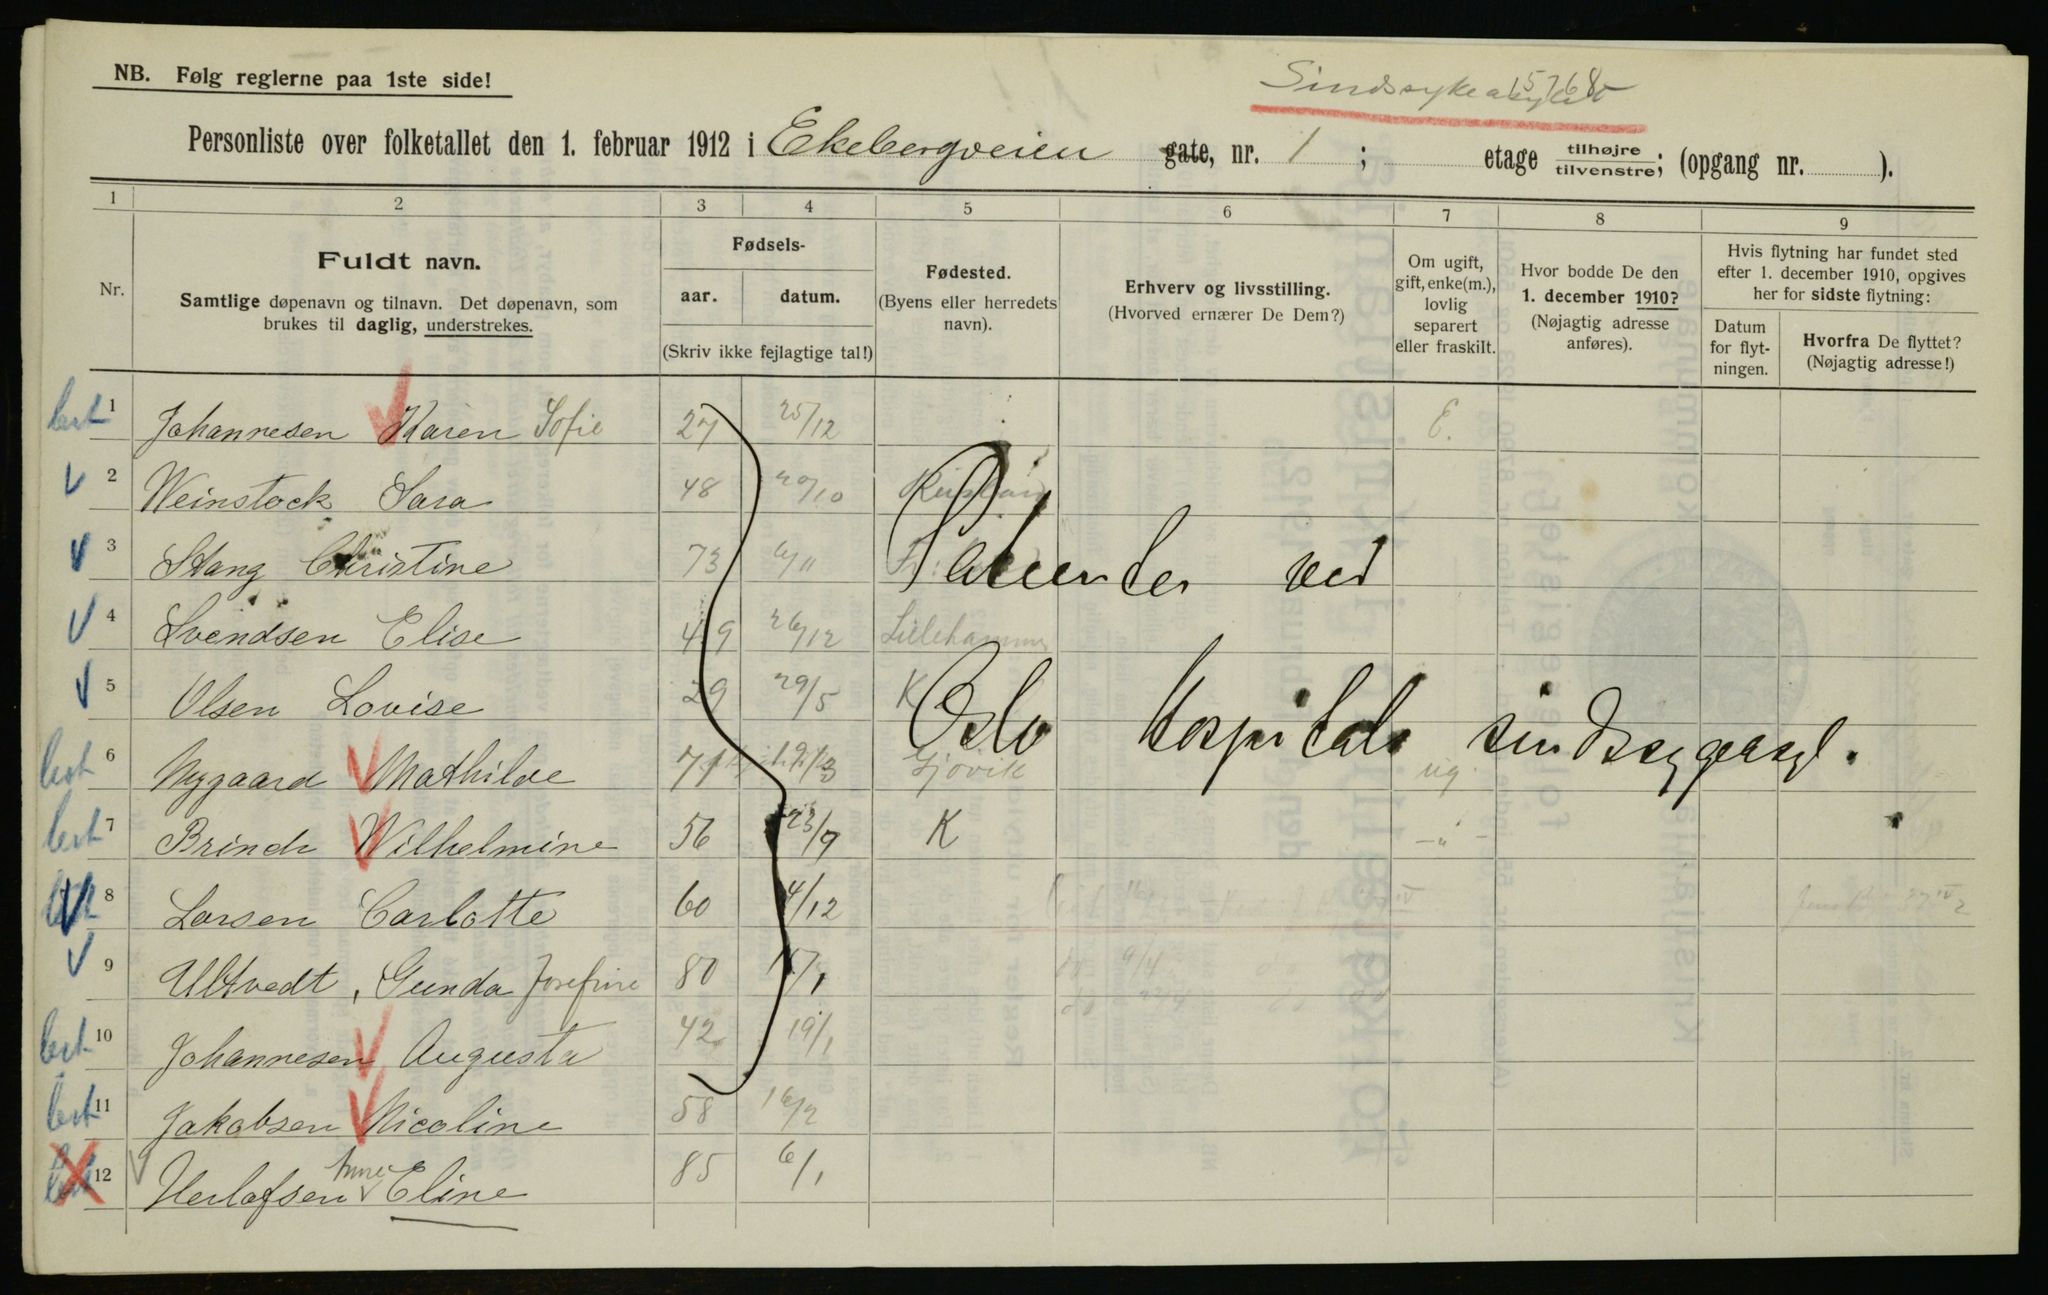 NB. Følg reglerne paa 1ste side!
Sindssykeasylet 15768
Personliste over folketallet den 1. februar 1912 i Ekebergveien gate, nr. 1 ; etage tilhøjre tilvenstre; (opgang nr. ).
1 2 3 4 5 6 7 8 9
Nr.
Fuldt navn.
Samtlige døpenavn og tilnavn. Det døpenavn, som
brukes til daglig, understrekes.
Fødsels-
aar. datum.
(Skriv ikke fejlagtige tal!)
Fødested.
(Byens eller herredets
navn).
Erhverv og livsstilling.
(Hvorved ernærer De Dem?)
Om ugift,
gift, enke(m.),
lovlig
separert
eller fraskilt.
Hvor bodde De den
1. december 1910?
(Nøjagtig adresse
anføres).
Hvis flytning har fundet sted
efter 1. december 1910, opgives
her for sidste flytning:
Datum
for flyt-
ningen.
Hvorfra De flyttet?
(Nøjagtig adresse!)
1 Johannesen Karen Sofie 27 25/12 E.
2 Weinstock Sara 48 20/10
3 Stang Christine 73 6/11
Patienter ved
4 Svendsen Elise 49 26/12 Lillehammer
5 Olsen Lovise 29 29/5 K
Oslo Hospitals sindssygeasyl.
6 Nygaard Mathilde 71 Gjøvik ug.
7 Brinch Wilhelmine 56 23/9 K -"-
8 Larsen Carlotte 60 4/12
9 Ultvedt, Gunda Josefine 80 15/1
10 Johannesen Augusta 42 19/1
11 Jakobsen Nicoline 58 16/2
12 Herlofsen Anne Eline 85 6/1